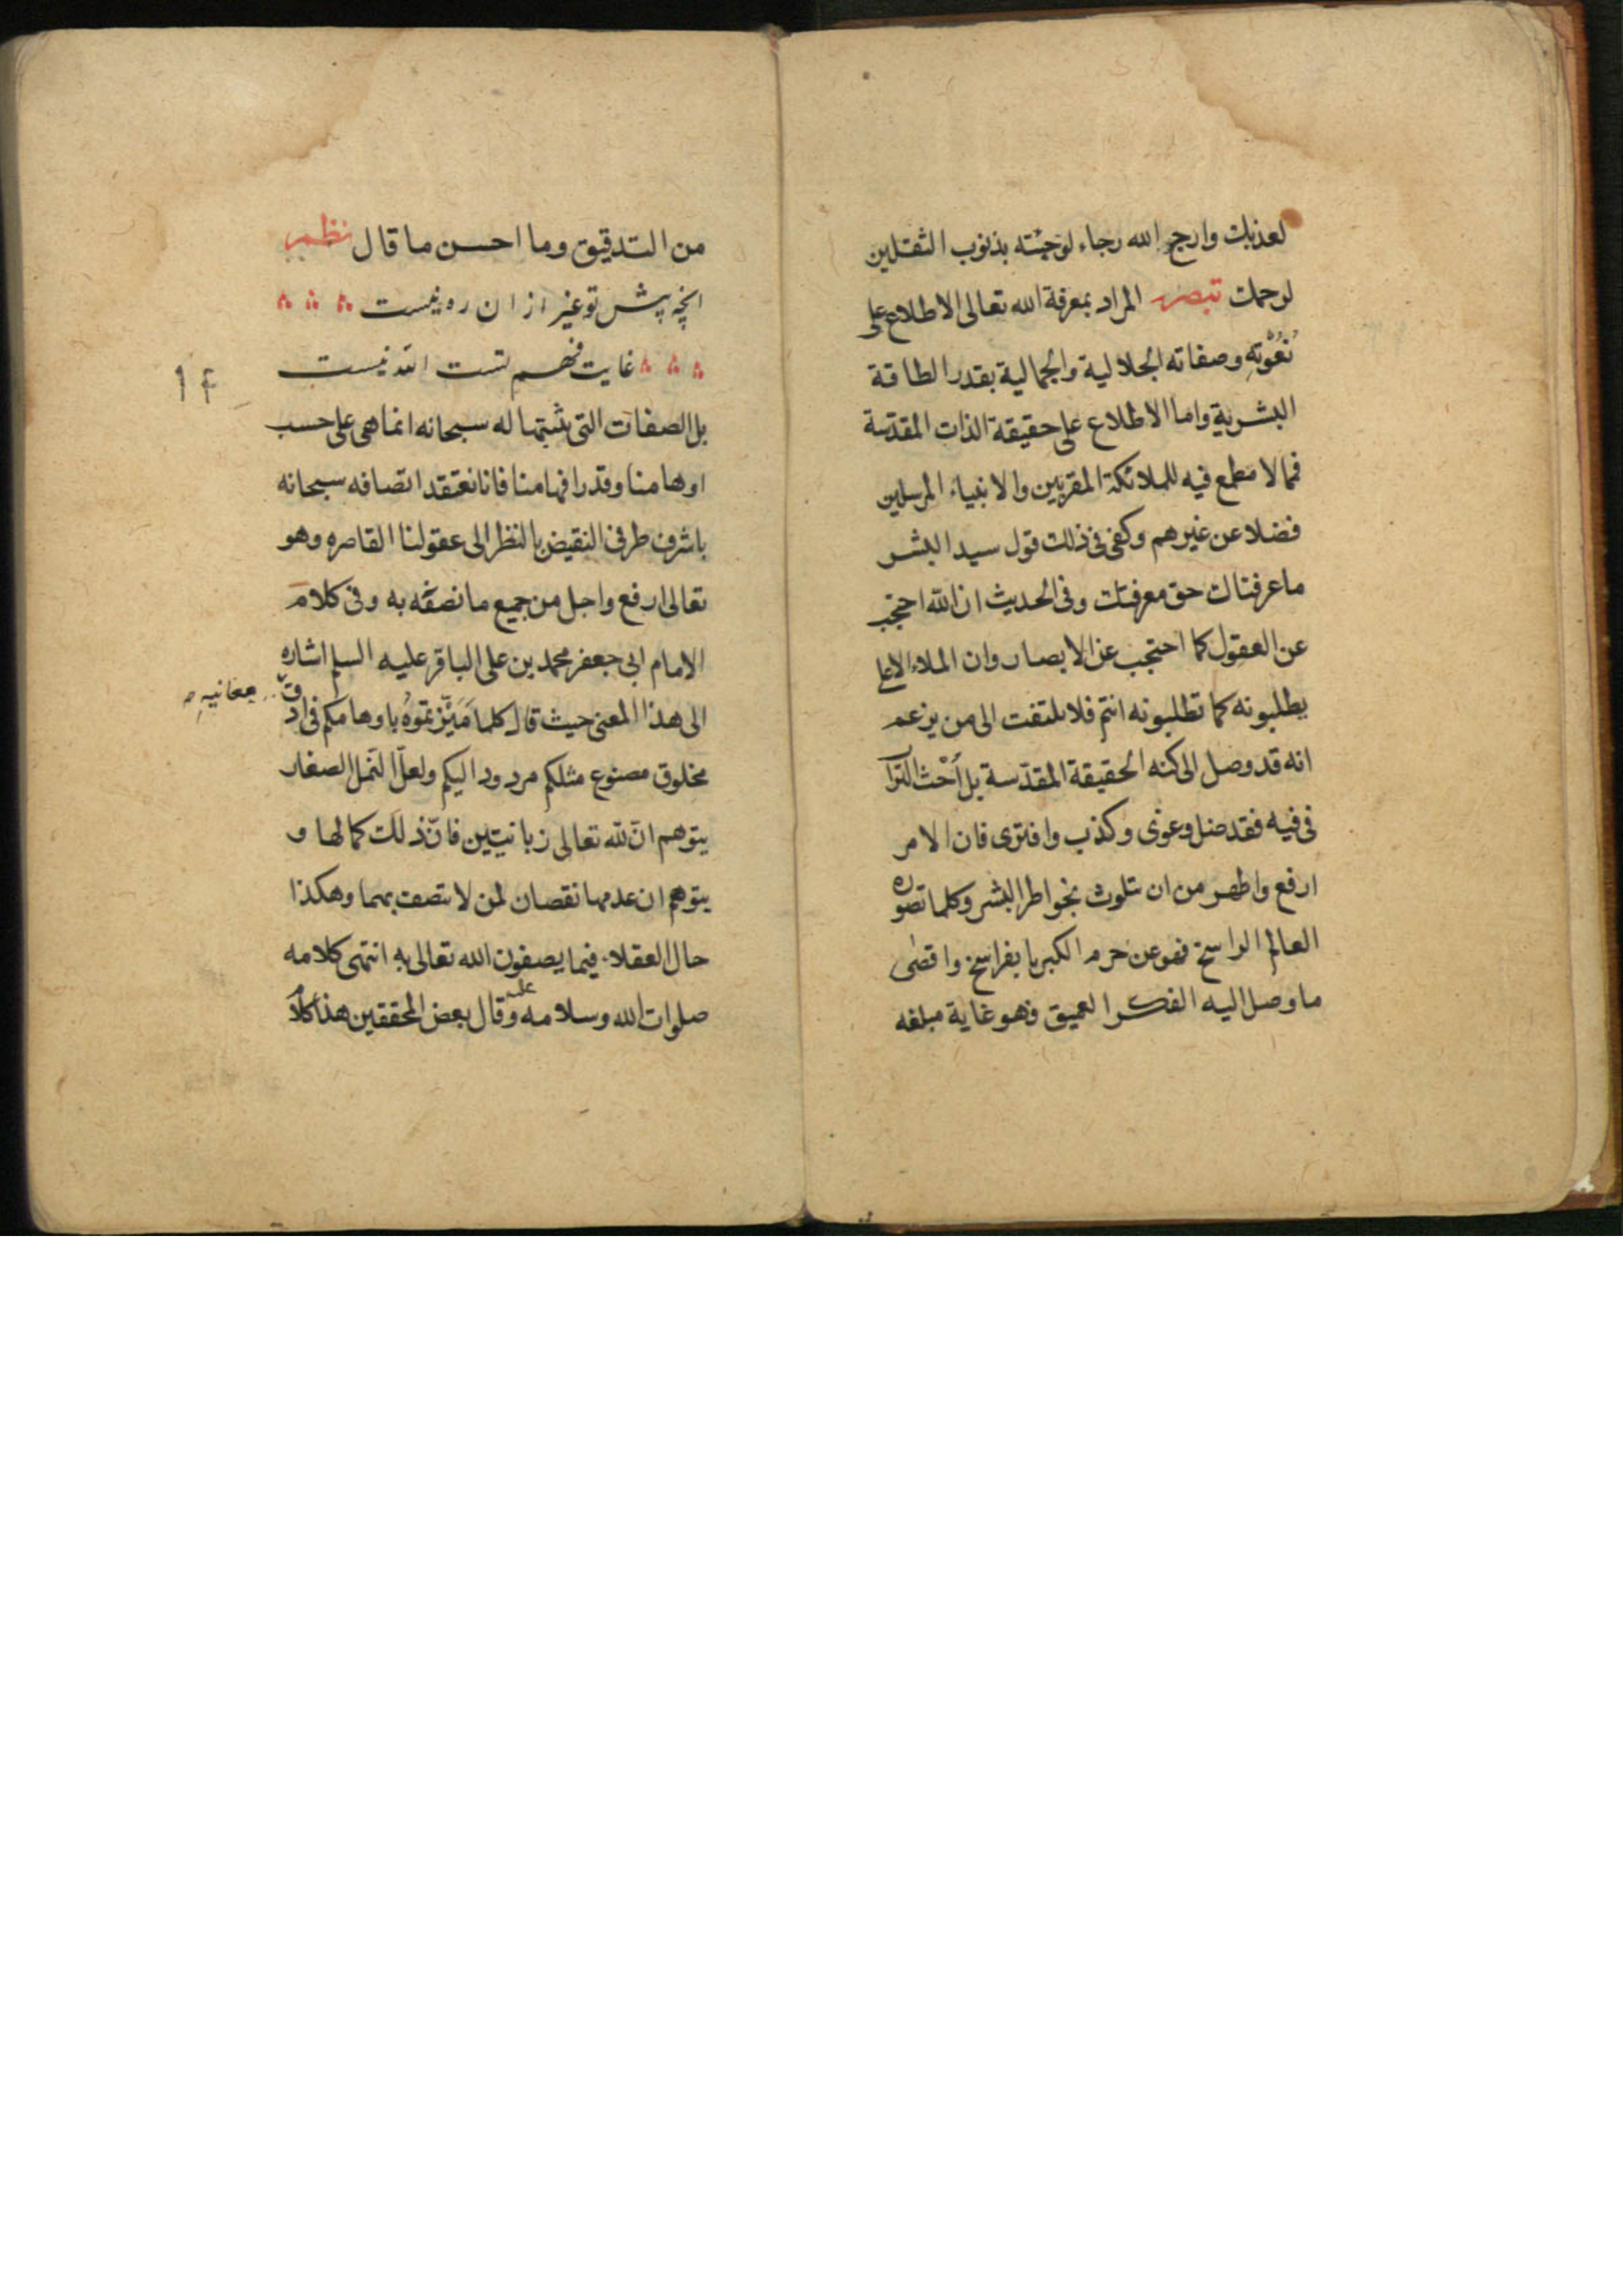 لعذبك وارج الله رجاء لوجئته بذنوب الثقلين
لرحمك تبصره المراد بمعرفة الله تعالى الاطلاع على
نُعُوْتِهِ وصفاته الجلالية والجمالية بقدر الطاقة
البشرية واما الاطلاع على حقيقة الذات المقدسة
فمما لا مطمع فيه للملائكة المقربين والانبياء المرسلين
فضلا عن غيرهم وكفى فى ذلك قول سيد البشر
ما عرفناك حق معرفتك وفى الحديث ان الله احتجب
عن العقول كما احتجب عن الابصار وان الملاء الاعلى
يطلبونه كما تطلبونه انتم فلا تلتفت الى من يزعم
انه قد وصل الى كنه الحقيقة المقدّسة بل اُحْثُ التراب
فى فيه فقد ضل وغوى وكذب وافترى فان الامر
ارفع واطهر من ان يتلوث بخواطر البشر وكلما تصوره
العالم الراسخ فهو عن حرم الكبريا بفراسخ واقصى
ما وصل اليه الفكر العميق فهو غاية مبلغه
من التدقيق وما احسن ما قال نظم
انچه پیش تو غیر از ان ره نیست
غایت فهم تست الله نیست
١۴
بل الصفات التى نثبتها له سبحانه انما هى على حسب
اوهامنا وقدر افهامنا فانا نعتقد اتصافه سبحانه
باشرف طرفى النقيض بالنظر الى عقولنا القاصره وهو
تعالى ارفع واجل من جميع ما نصفه به وفى كلام
الامام ابى جعفر محمد بن على الباقر عليه السلم اشاره
الى هذا المعنى حيث قال كلما مَيَّزتموُه باوهامكم فى ادقّ
معانيهِ
مخلوق مصنوع مثلكم مردود اليكم ولعلّ النمل الصغار
يتوهم انّ لله تعالى زبانيتين فانّ ذلك كمالها و
يتوهم ان عدمها نقصان لمن لا يتصف بهما وهكذا
حال العقلاء فيما يصفون الله تعالى به انتهى كلامه
صلوات الله وسلامه عليه وقال بعض المحققين هذا كلام